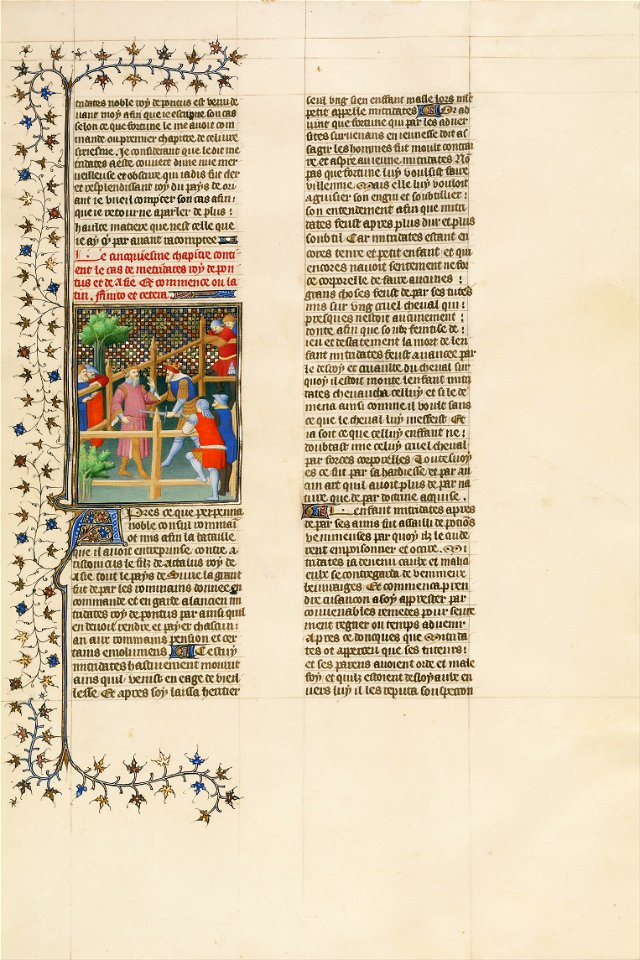 tridates noble roy de pontus est venu de
uant moy afin que ie escripue son cas
selon ce que fortune le me auoit com
mande ou premier chapitre de celiure
sixiesme. Je considerant que le dit mi
tridates a este couuert dune nue mer
ueilleuse et obscure qui iadis fut cler
et resplendissant roy du pays de ori
ant ie vueil compter son cas afin
que ie retourne a parler de plus
haulte matiere que nest celle que
ie ay cy par auant racomptee
Le cinquiesme chapitre conti
ent le cas de metridates roy de pon
tus et de Asie. Et commence ou la
tin. Finito et cetera
Apres ce que perpenna
noble consul rommai
ot mis afin la bataille
que il auoit entreprinse contre a
ristonicus le filz de actalus roy de
Asie tout le pays de Surie la grant
fut de par les rommains donnee en
commande et en garde alancien mi
tridates roy de pontus par ainsi quil
en deuoit rendre et payer chascun
an aux rommains pension et cer
tains emolumens Cestuy
mitridates hastiuement mourut
ains quil venist en eage de vieil
lesse Et apres soy laissa heritier
seul vng sien enfant masle lors mlt
petit appelle mitridates Or ad
uint que fortune qui par les aduer
sites suruenans en ieunesse doit as
sagir les hommes fut moult contrai
re et aspre au ieune mitridates No
pas que fortune luy voulsist faire
villennie Mais elle luy vouloit
aguisier son engin et soubtillier
son entendement afin que mitri
dates feust apres plus dur et plus
soubtil Car mitridates estant en
cores tenre et petit enfant et qui
encores nauoit sentement ne for
ce corporelle de faire aucunes
grans choses feust de par ses tuteurs
mis sur vng cruel cheval qui
presques nestoit aucunement
donte afin que soubz feintise de
ieu et desbatement la mort de len
fant mitridates feust auancee par
le desroy et cruaulte du cheual sur
quoy il estoit monte lenfant mitri
dates cheuaucha celluy et si le de
mena ainsi comme il voult sans
ce que le cheual luy messeist Et
ia soit ce que celluy enffant ne
doubtast mie celuy cruel cheual
par forces corporelles Touteuoyes
ce fut par sa hardiesse et par au
cun art quil auoit plus de par na
ture que de par doctrine acquise.
Lenfant mitridates apres
de par ses amis fut assailli de poisos
venimeuses par quoy ilz le cuide
rent empoisonner et occire. Mi
tridates ia deuenu caulte et mali
cieux se contregarda de venimeux
beuurages Et commenca pren
dre cusancon a soy apprester par
couuenables remedes pour seure
ment regner ou temps aduenir
Apres ce doncques que Mitrida
tes ot apperceu que ses tuteurs
et ses parens auoient orde et male
foy et quilz estoient desloyaulx en
uers luy il les reputa souspecon